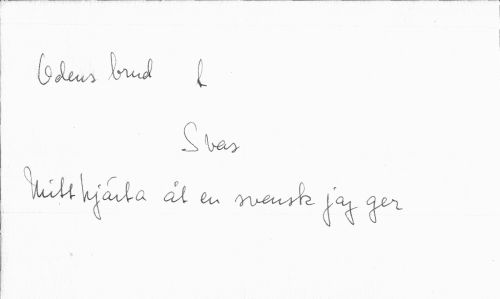 Odens brud
Svas
Mitt hjärta åt en svensk jag ger